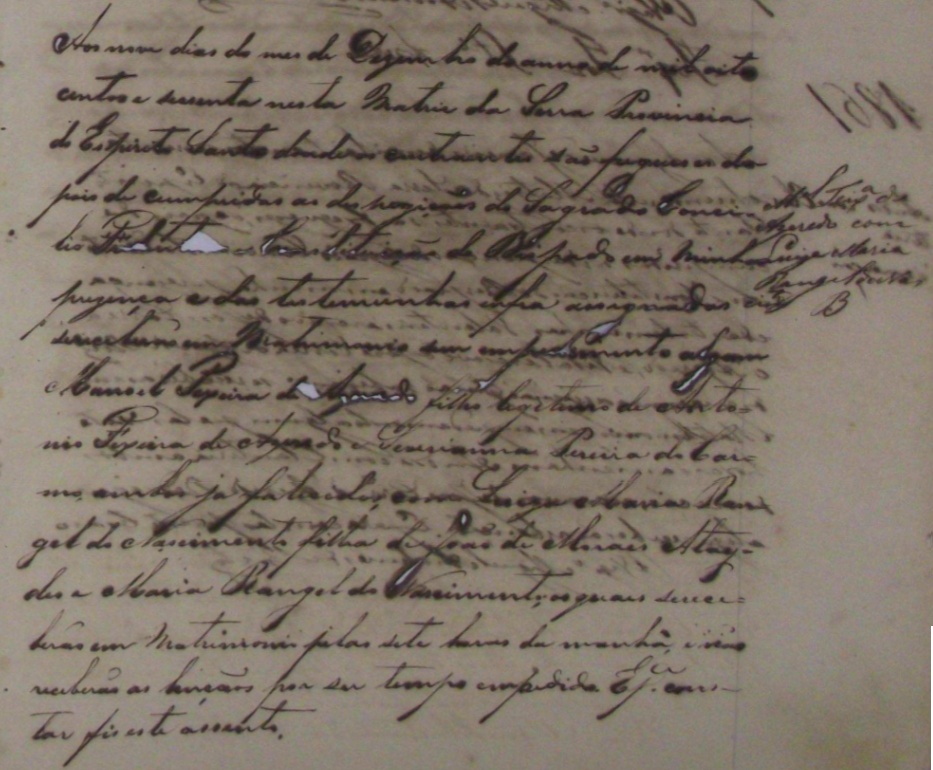 Aos nove dias do mes de Dezembro do anno de mil oito
centos e secenta nesta Matriz da Serra Provincia
do Espirito Santo donde os contrahentes são freguezes de
pois de cumpridas as despozições do Sagrado Conci-
lio Tridentino e Constituição do Bispado em minha
prezença e das testemunhas infra assignadas
se receberão em Matrimonio sem empedimento algum
Manoel Teixeira de Azeredo filho legitimo de Anto-
nio Teixeira de Azeredo e Pereira do Car-
mo, ambos ja falecidos, com Luiza Maria Ran
gel do Nascimento filha de João de Moraes Atay-
des e Maria Rangel do Nascimento, os quaes se rece-
berão em Matrimonio pelas sete horas da manhã, e não
receberão as benções por ser tempo empedido E p.ª cons-
tar fis este assento.
1861
M. Teix.ª de
Azeredo com
Luiza Maria
Rangel
B